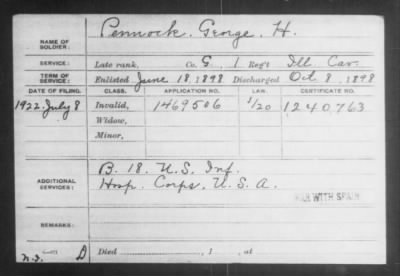 NAME OF SOLDIER: Pennock, George, H.
SERVICE: Late rank, Co. G, 1 Reg't Ill. Cav.
TERM OF SERVICE: Enlisted June 18, 1898 Discharged Oct 8, 1898
DATE OF FILING. CLASS. APPLICATION NO. LAW. CERTIFICATE NO.
1922 July 8 Invalid, 1469506 1/20 1240763
Widow,
Minor,
ADDITIONAL SERVICES: B. 18. U.S. Inf.
Hosp. Corps, U.S.A.
WAR WITH SPAIN
REMARKS:
D Died , 1 , at